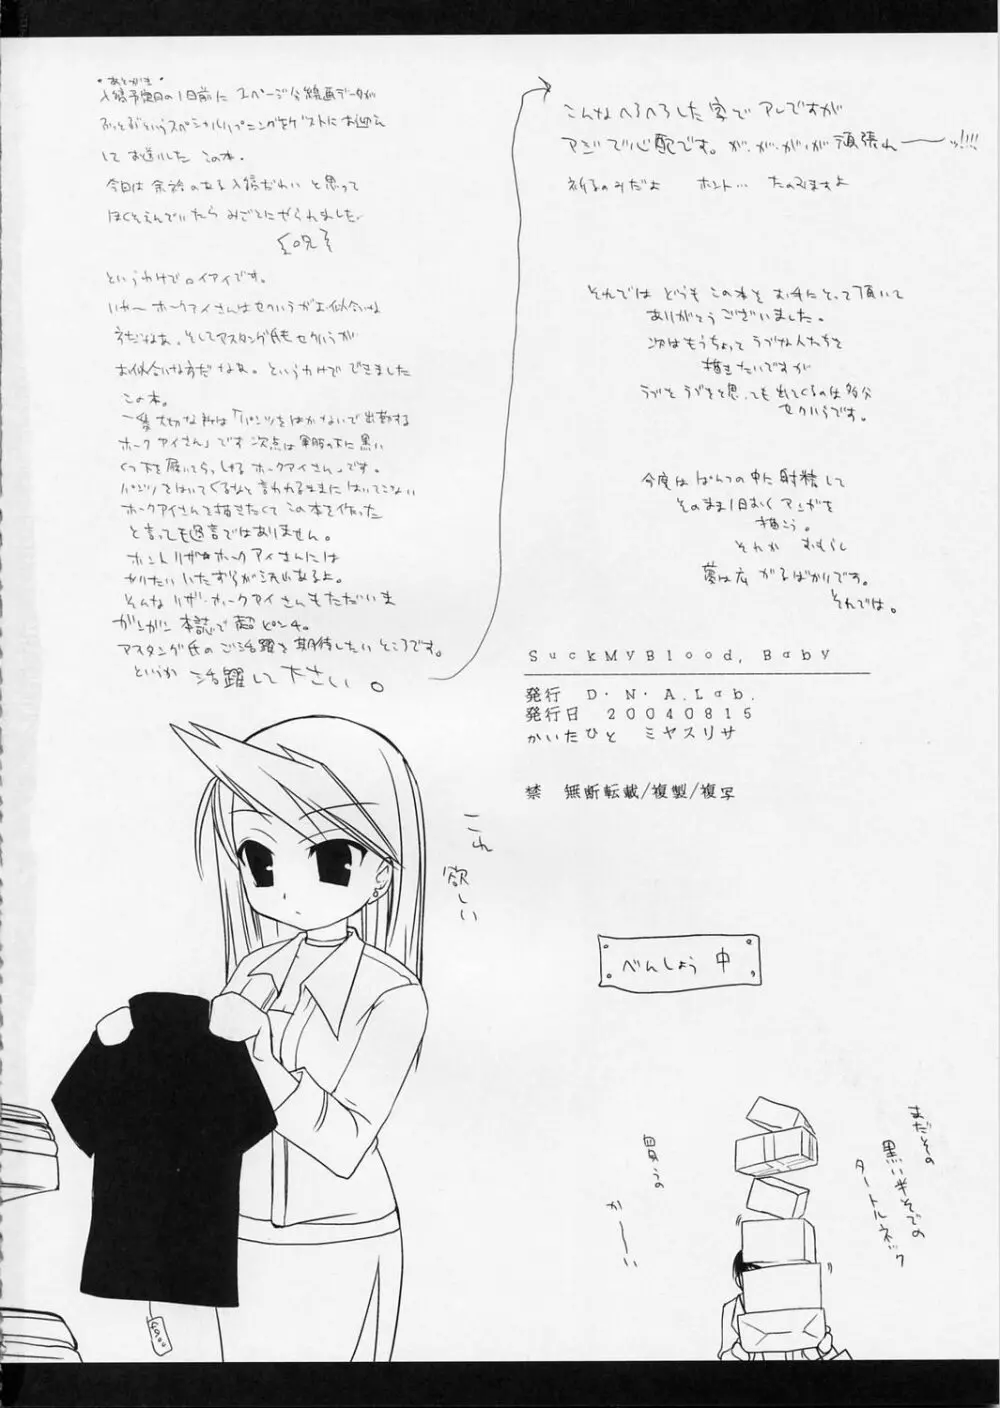 ・あとがき・
入稿予定日の1日前に2ページ分線画データが
ぶっとぶというスペシャルハプニングをゲストにお迎え
してお送りしたこの本。
今回は余裕のある入稿だわいと思って
ほくそえんでいたらみごとにやられました
というわけでロイアイです。
いやーホークアイさんはセクハラがお似合いな
方だなぁ。そしてマスタング氏もセクハラが
お似合いな方だなぁ。というわけでできました
この本。
一番大切な所は「パンツをはかないで出勤する
ホークアイさん」です 次点は軍服の下に黒い
くつ下を履いてらっしゃるホークアイさん」です。
パンツをはいてくるなと言われるままにはいてこない
ホークアイさんを描きたくてこの本を作った
と言っても過言ではありません。
ホントリザ・ホークアイさんには
やりたいいたずらが沢山あるよ。
そんなリザ・ホークアイさんもただいま
ガンガン本誌で超ピンチ。
マスタング氏のご活躍を期待したいところです。
というか 活躍して下さい。
こんなへろへろした字でアレですが
マジで心配です。が、が、が、が頑張れ――ッ!!!!
祈るのみだよ ホント… たのみますよ
それでは どうも この本を お手にとって頂いて
ありがとうございました。
次はもうちょってラブな人たちを
描きたいですが
ラブをラブをと思っても出てくるのは多分
セクハラです。
今度はぱんつの中に射精して
そのまま1日おくマンガを
描こう。
それか おもらし
夢は広がるばかりです。
それでは。
SuckMyBlood, Baby
発行 D・N・A.Lab.
発行日 20040815
かいたひと ミヤスリサ
禁 無断転載/複製/複写
これ
欲しい
べんしょう 中
買うの
かーーい
まだその
黒い半そでの
タートルネック